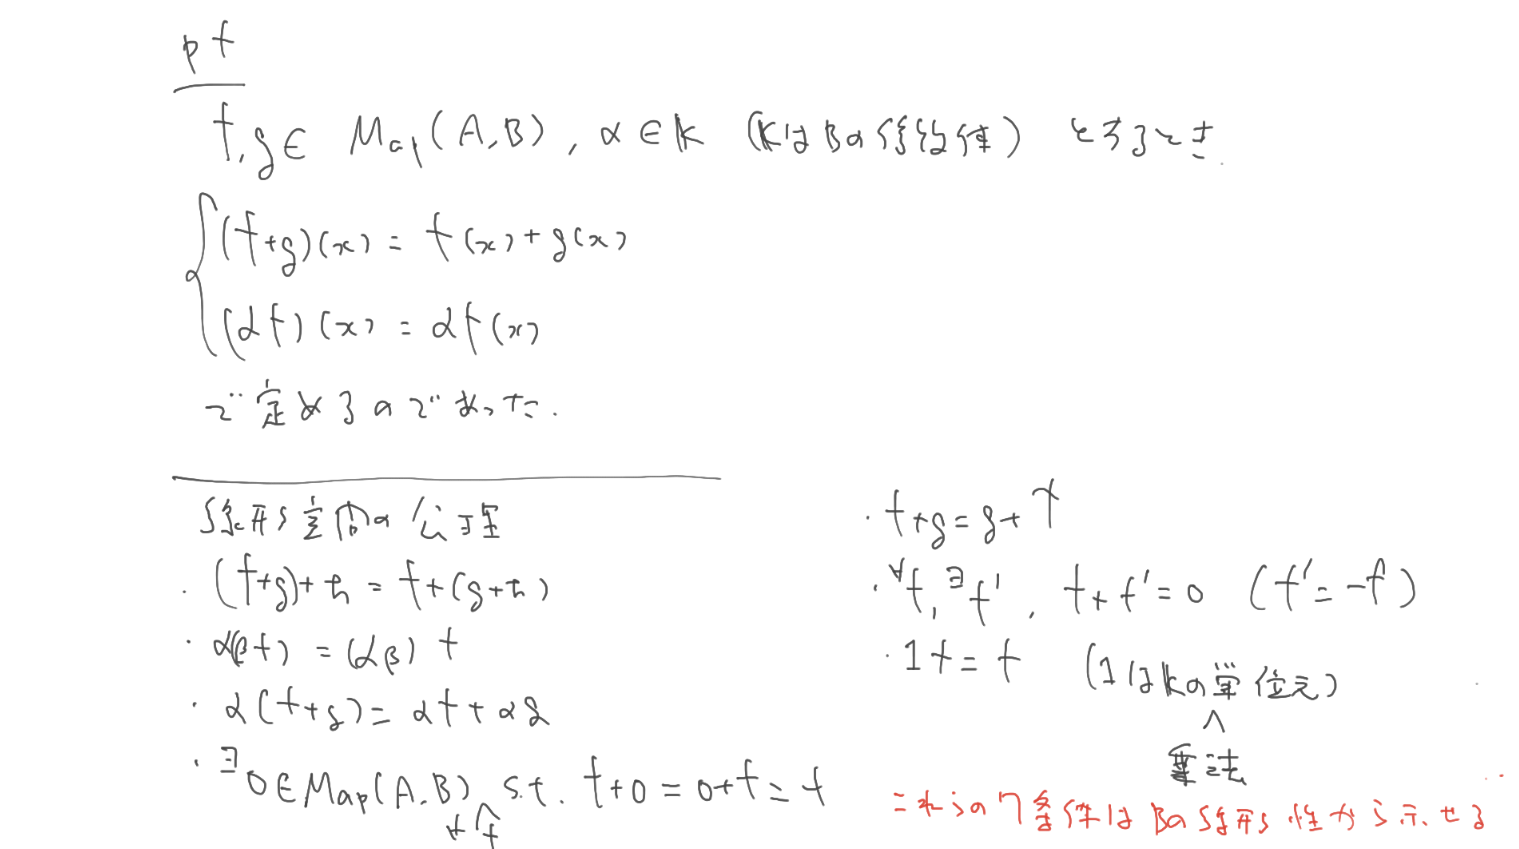 pf
f, g ∈ Map(A,B), α ∈ k (kはBの係数体) とするとき
(f+g)(x) = f(x)+g(x)
(αf)(x) = αf(x)
で定めるのであった.
線形空間の公理
・(f+g)+h = f+(g+h)
・α(βf) = (αβ)f
・α(f+g) = αf+αg
・∃0∈Map(A,B) s.t. f+0 = 0+f = f
∀f
・f+g = g+f
・∀f, ∃f', f+f' = 0 (f' = -f)
・1f = f (1はkの単位元)
乗法
これらの7条件はBの線形性から示せる